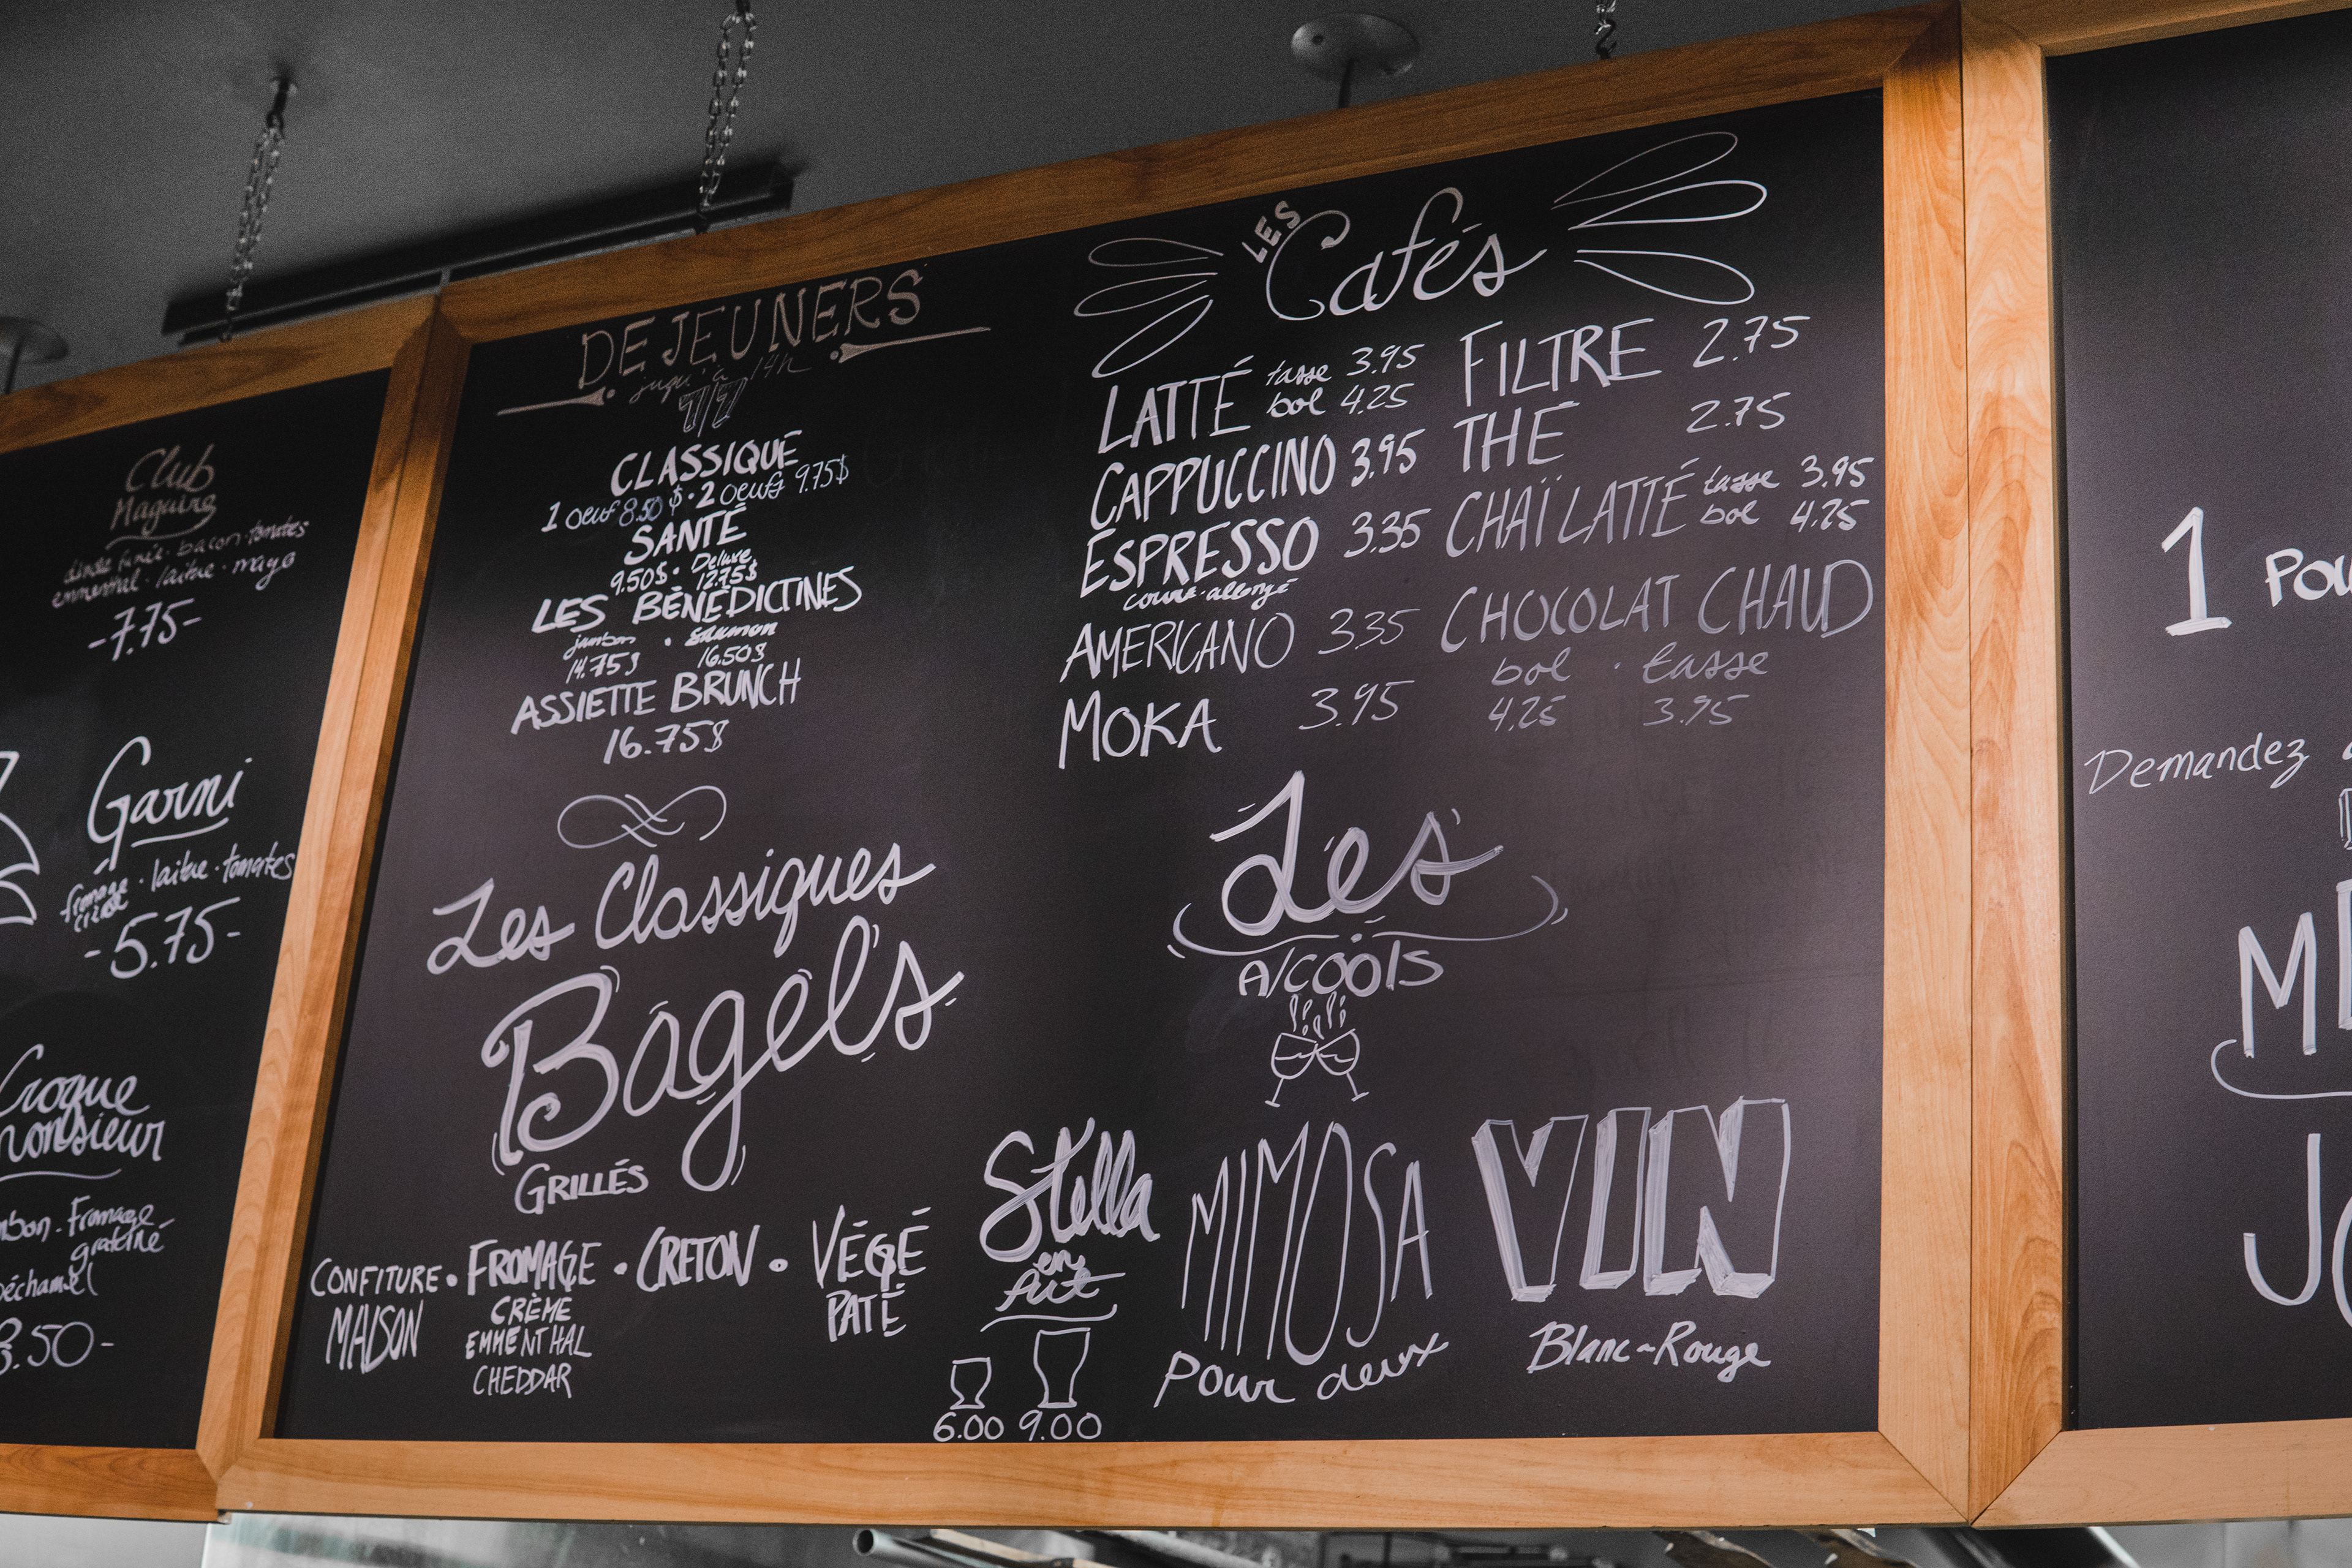 Club
Maguire
dinde fumée · bacon · tomates
emmental · laitue · mayo
-7.75-
Garni
fromage · laitue · tomates
crème
-5.75-
Croque
monsieur
Fromage
gratiné
béchamel
.50-
DEJEUNERS
jusqu'à 14h
7/7
CLASSIQUE
1 oeuf 8.50$ · 2 oeufs 9.75$
SANTÉ
9.50$ · Deluxe
12.75$
LES BÉNÉDICTINES
jambon · saumon
14.75$ 16.50$
ASSIETTE BRUNCH
16.75$
Les Classiques
Bagels
GRILLÉS
CONFITURE · FROMAGE · CRETON · VÉGÉ
MAISON CRÈME PATÉ
EMMENTHAL
CHEDDAR
LES
Cafés
LATTÉ tasse 3.95 FILTRE 2.75
bol 4.25
CAPPUCCINO 3.95 THÉ 2.75
ESPRESSO 3.35 CHAÏ LATTÉ tasse 3.95
court · allongé bol 4.25
AMERICANO 3.35 CHOCOLAT CHAUD
bol · tasse
MOKA 3.95 4.25 3.95
Les
Alcools
Stella MIMOSA VIN
en
fût
pour deux Blanc~Rouge
6.00 9.00
1 Pou
Demandez
M
J